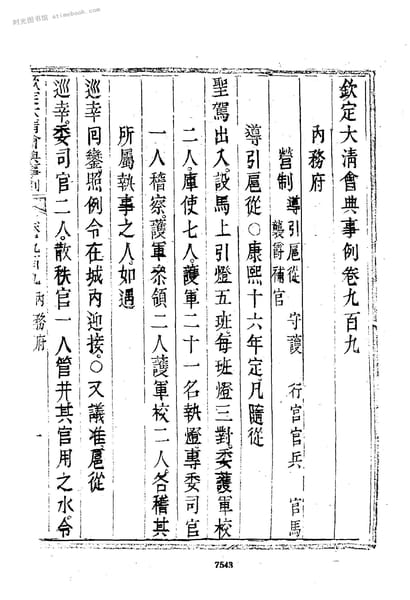 时光图书馆 atimebook.com
欽定大清會典事例卷九百九
內務府
營制 導引扈從 守護 行宮官兵 官馬
襲爵補官
導引扈從○康熙十六年定凡隨從
聖駕出入設馬上引燈五班每班燈三對委護軍校
二人庫使七人護軍二十一名執燈專委司官
一人稽察護軍叅領二人護軍校二人各稽其
所屬執事之人如遇
巡幸回鑾照例令在城內迎接○又議准扈從
巡幸委司官二人散秩官一人管井其官用之水令
欽定大清會典事例 卷九百九 內務府 一
7543